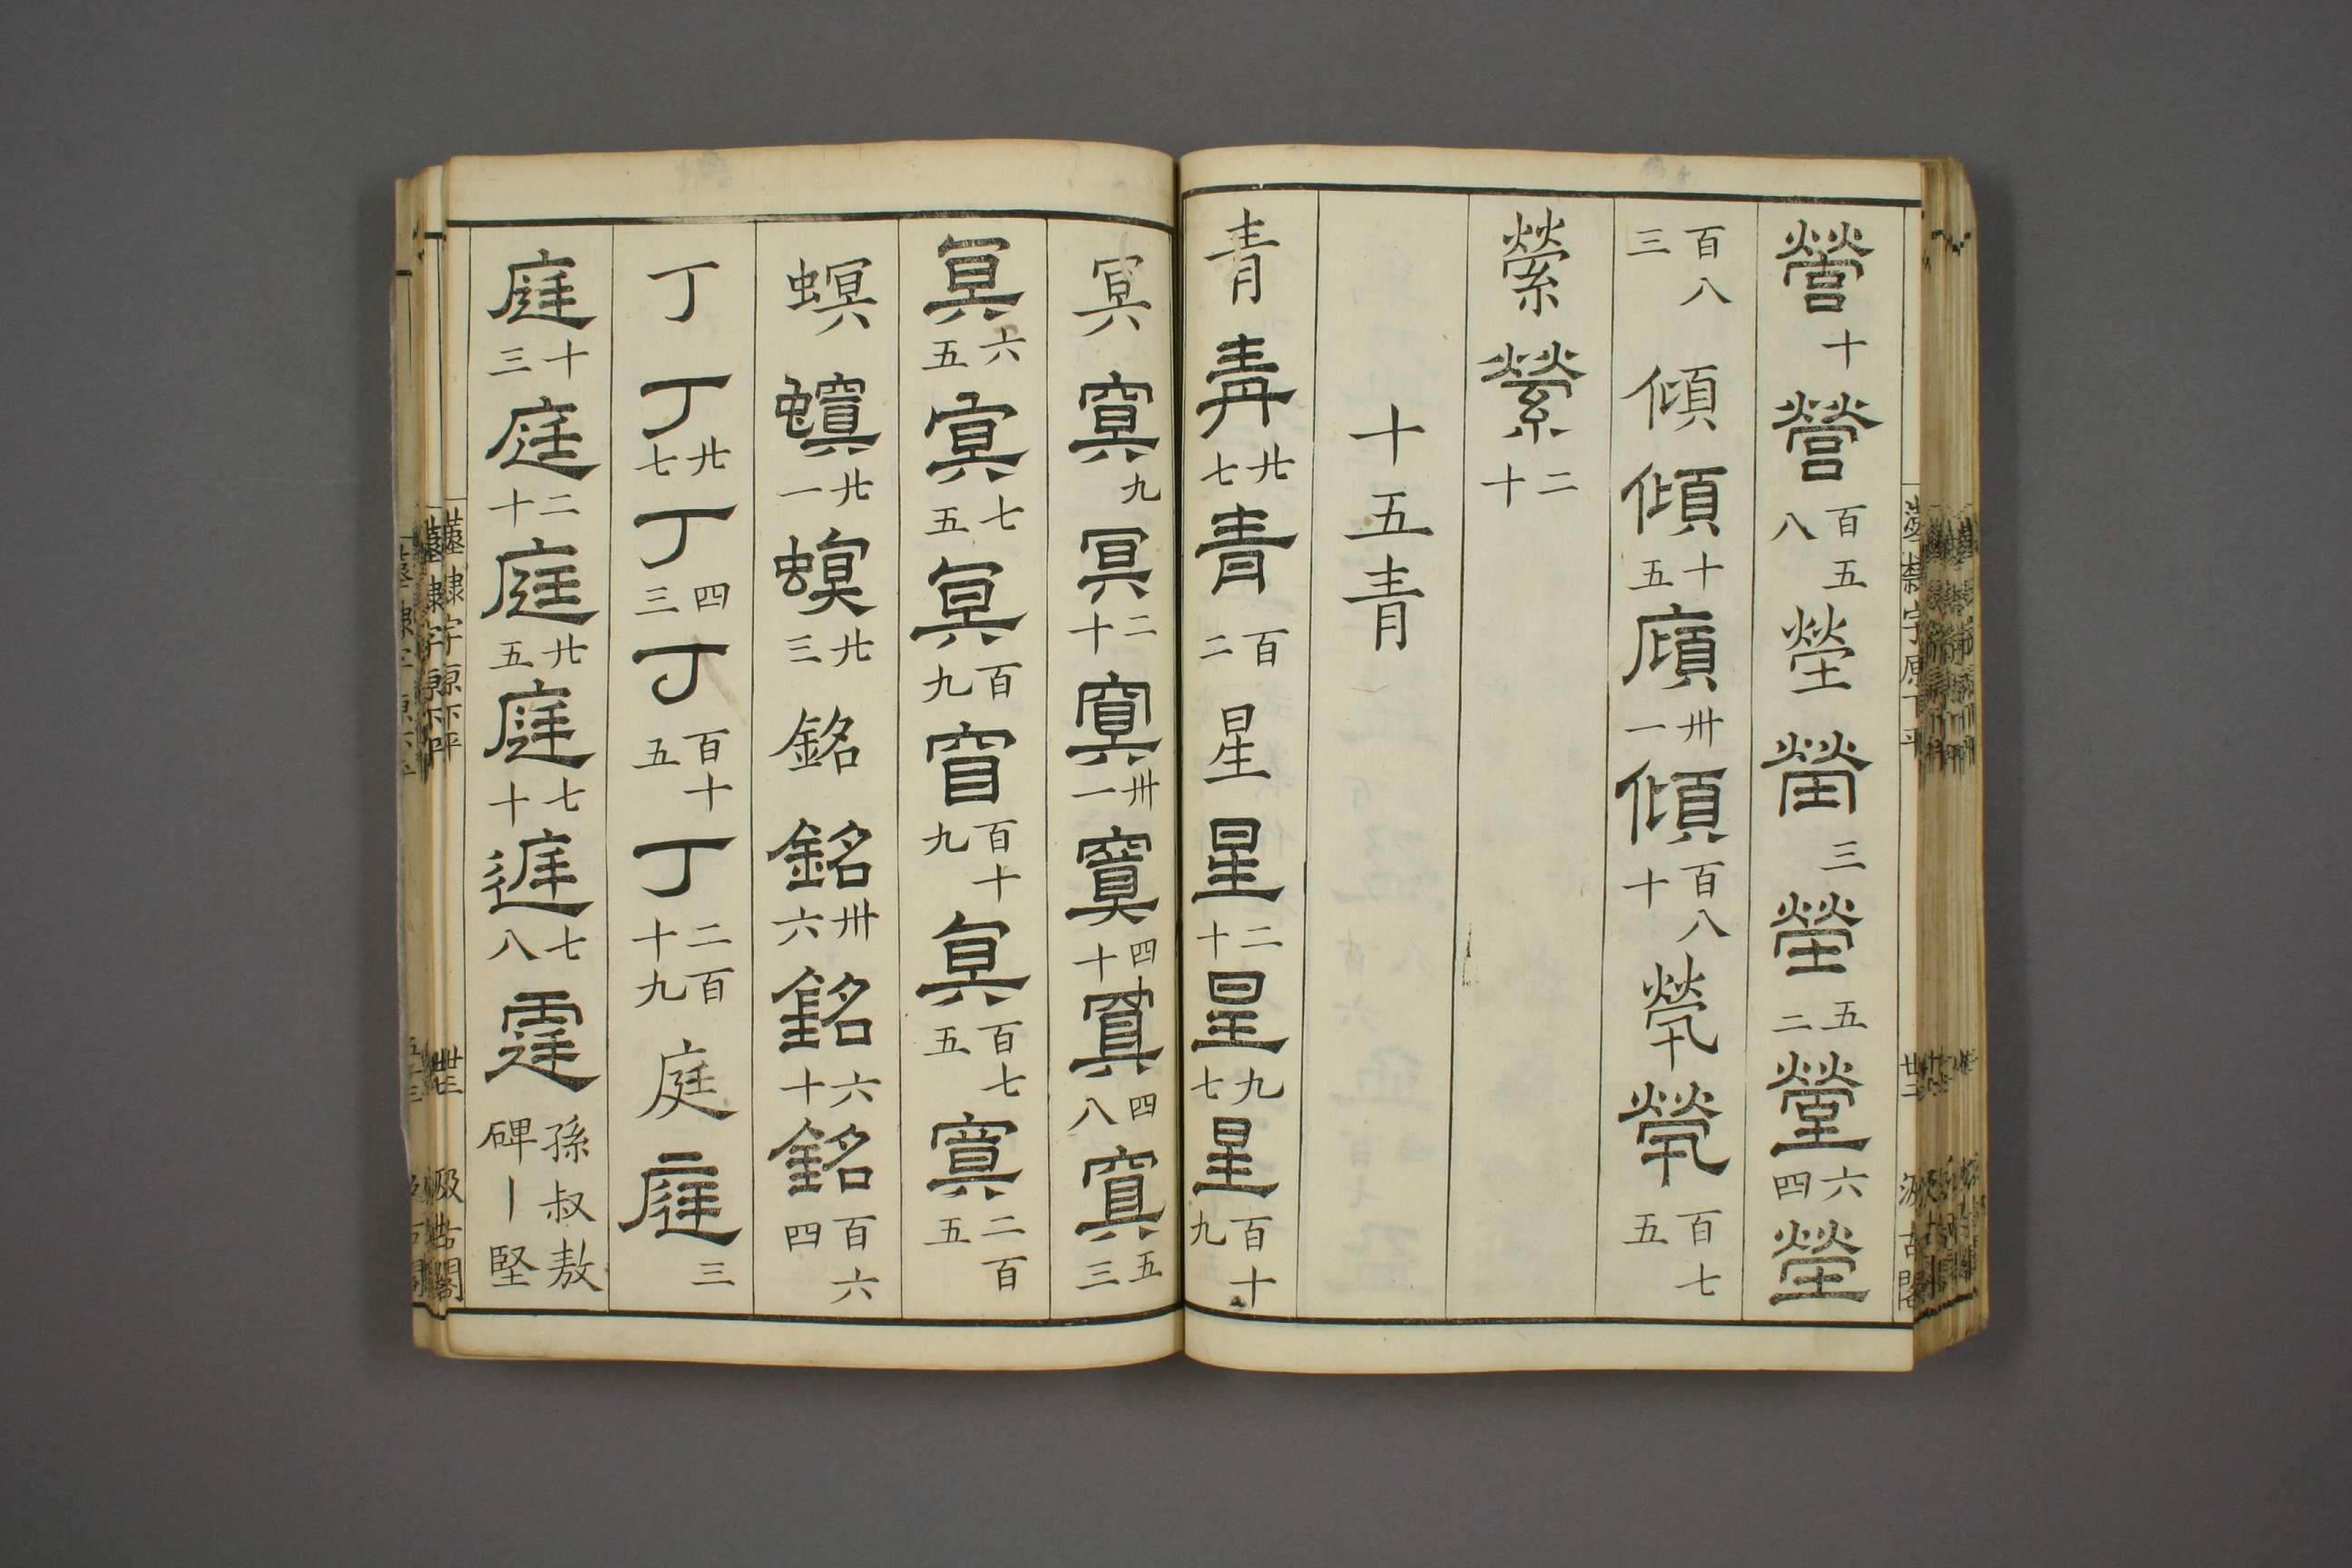 營十營百五八五塋塋三塋五二塋六四塋
百八三傾傾十五傾卅一傾百八十煢煢百七五
縈縈二十
十五青
青青廿七青百二星星二十星九七星百十九
冥冥九冥二十冥卅一冥四十冥四八冥五三
冥六五冥七五冥百九冥百十九冥百七五冥二百五
螟螟廿一螟廿三銘銘卅六銘六十銘百六四
丁丁廿七丁四三丁百十五丁二百十九庭庭三
庭十三庭二十庭廿五庭七十庭七八霆孫叔敖碑丨堅
隸字原下平
汲古閣